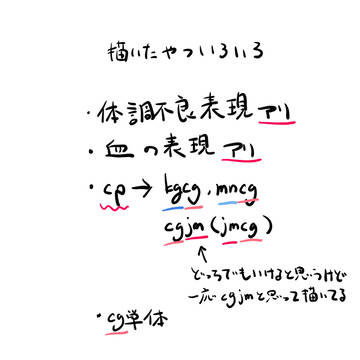 描いたやついろいろ
・体調不良表現アリ
・血の表現アリ
・cp→kgcg,mncg
cgjm(jmcg)
↑
どっちでもいけると思うけど
一応cgjmと思って描いてる
・cg単体